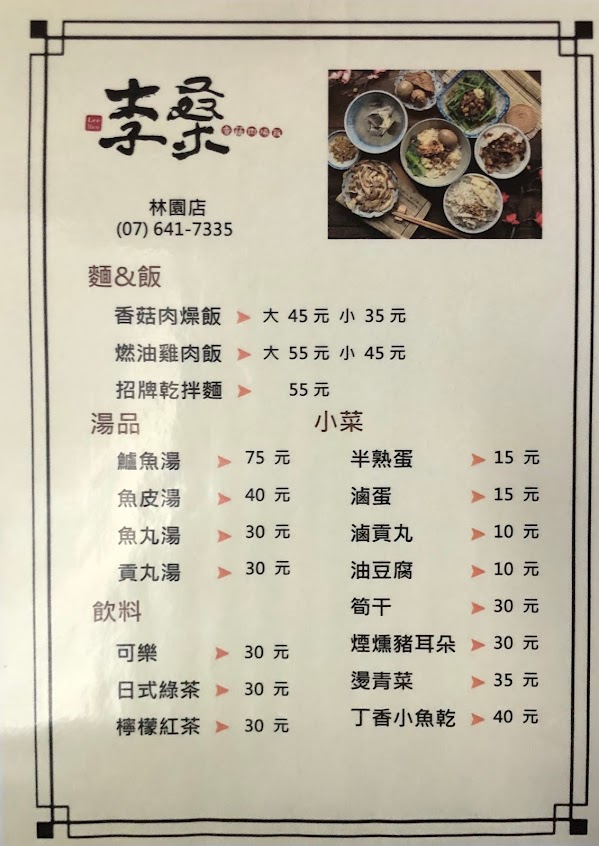 李桑
Lee
香菇肉燥飯
林園店
(07) 641-7335
麵&飯
香菇肉燥飯 ➤ 大 45 元 小 35 元
燃油雞肉飯 ➤ 大 55 元 小 45 元
招牌乾拌麵 ➤ 55 元
湯品
鱸魚湯 ➤ 75 元
魚皮湯 ➤ 40 元
魚丸湯 ➤ 30 元
貢丸湯 ➤ 30 元
飲料
可樂 ➤ 30 元
日式綠茶 ➤ 30 元
檸檬紅茶 ➤ 30 元
小菜
半熟蛋 ➤ 15 元
滷蛋 ➤ 15 元
滷貢丸 ➤ 10 元
油豆腐 ➤ 10 元
筍干 ➤ 30 元
煙燻豬耳朵 ➤ 30 元
燙青菜 ➤ 35 元
丁香小魚乾 ➤ 40 元